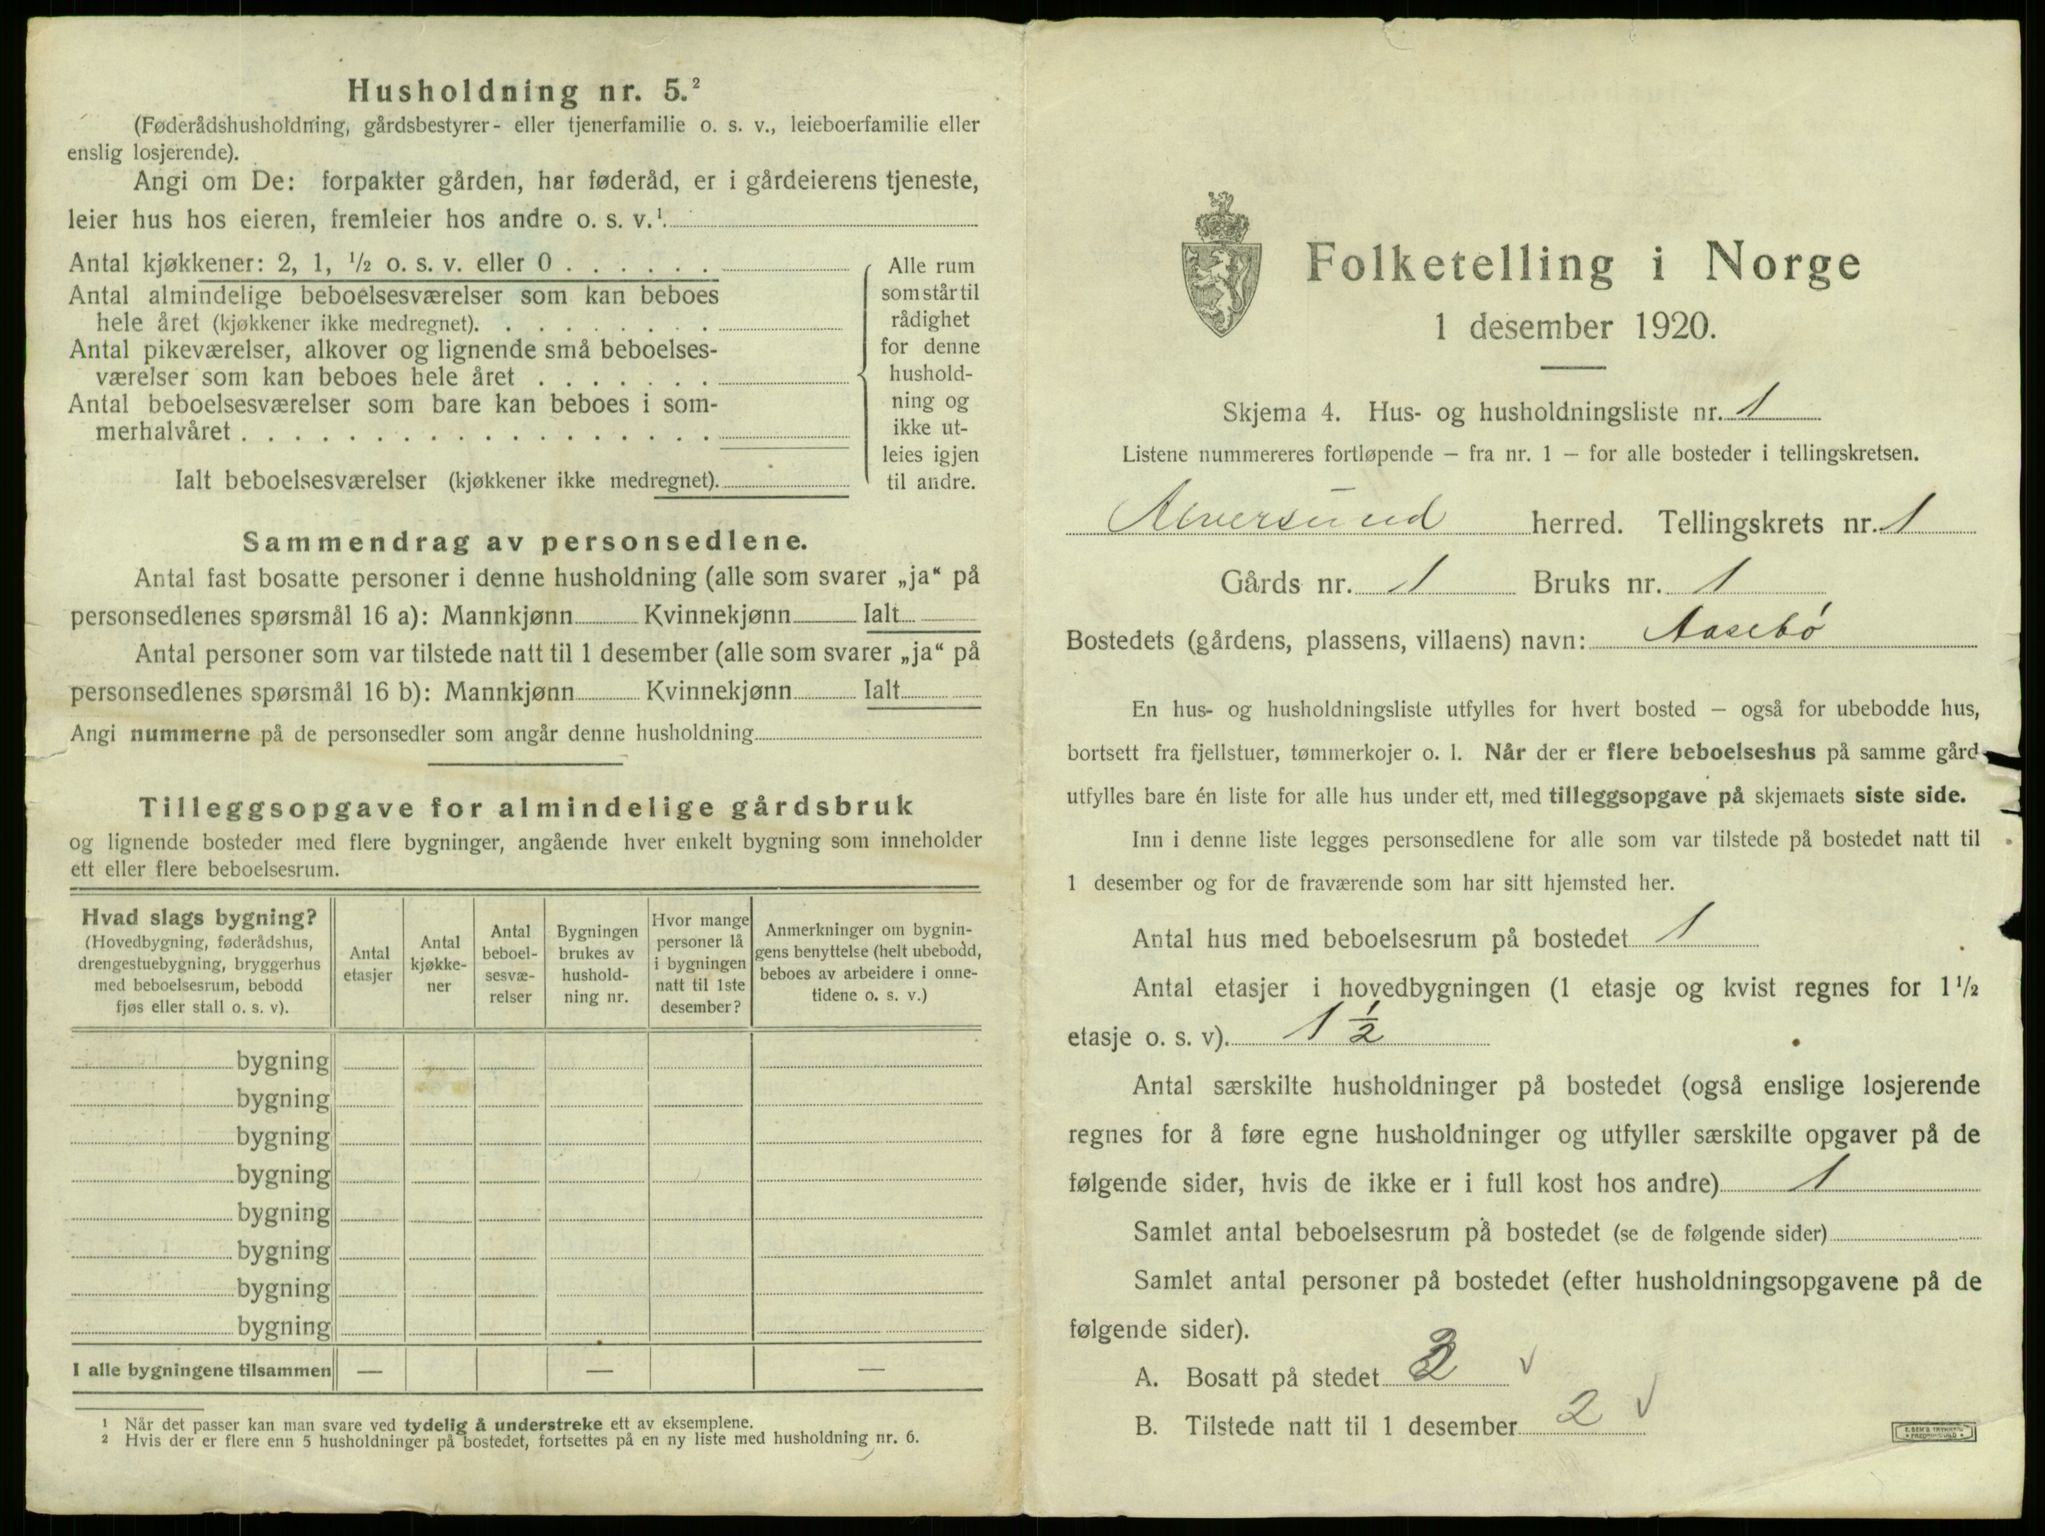 Husholdning nr. 5.²
(Føderådshusholdning, gårdsbestyrer- eller tjenerfamilie o. s. v., leieboerfamilie eller
enslig losjerende).
Angi om De: forpakter gården, har føderåd, er i gårdeierens tjeneste,
leier hus hos eieren, fremleier hos andre o. s. v.¹.
Antal kjøkkener: 2, 1, ½ o. s. v. eller 0 . . . . . .
Antal almindelige beboelsesværelser som kan beboes
hele året (kjøkkener ikke medregnet). . . . . . . . .
Antal pikeværelser, alkover og lignende små beboelses-
værelser som kan beboes hele året . . . . . . .
Antal beboelsesværelser som bare kan beboes i som-
merhalvåret . . . . . . . . . . . . . . . . . .
Ialt beboelsesværelser (kjøkkener ikke medregnet).
Alle rum
som står til
rådighet
for denne
hushold-
ning og
ikke ut-
leies igjen
til andre.
Sammendrag av personsedlene.
Antal fast bosatte personer i denne husholdning (alle som svarer „ja“ på
personsedlenes spørsmål 16 a): Mannkjønn Kvinnekjønn Ialt
Antal personer som var tilstede natt til 1 desember (alle som svarer „ja“ på
personsedlenes spørsmål 16 b): Mannkjønn Kvinnekjønn Ialt
Angi nummerne på de personsedler som angår denne husholdning
Tilleggsopgave for almindelige gårdsbruk
og lignende bosteder med flere bygninger, angående hver enkelt bygning som inneholder
ett eller flere beboelsesrum.
Hvad slags bygning?
(Hovedbygning, føderådshus,
drengestuebygning, bryggerhus
med beboelsesrum, bebodd
fjøs eller stall o. s. v).
Antal
etasjer
Antal
kjøkke-
ner
Antal
beboel-
sesvæ-
relser
Bygningen
brukes av
hushold-
ning nr.
Hvor mange
personer lå
i bygningen
natt til 1ste
desember?
Anmerkninger om bygnin-
gens benyttelse (helt ubebodd,
beboes av arbeidere i onne-
tidene o. s. v.)
bygning
bygning
bygning
bygning
bygning
bygning
bygning
bygning
I alle bygningene tilsammen — — —
¹ Når det passer kan man svare ved tydelig å understreke ett av eksemplene.
² Hvis der er flere enn 5 husholdninger på bostedet, fortsettes på en ny liste med husholdning nr. 6.
Folketelling i Norge
1 desember 1920.
Skjema 4. Hus- og husholdningsliste nr. 1
Listene nummereres fortløpende – fra nr. 1 – for alle bosteder i tellingskretsen.
Alversund herred. Tellingskrets nr. 1
Gårds nr. 1 Bruks nr. 1
Bostedets (gårdens, plassens, villaens) navn: Aasebø
En hus- og husholdningsliste utfylles for hvert bosted – også for ubebodde hus,
bortsett fra fjellstuer, tømmerkojer o. l. Når der er flere beboelseshus på samme gård
utfylles bare én liste for alle hus under ett, med tilleggsopgave på skjemaets siste side.
Inn i denne liste legges personsedlene for alle som var tilstede på bostedet natt til
1 desember og for de fraværende som har sitt hjemsted her.
Antal hus med beboelsesrum på bostedet 1
Antal etasjer i hovedbygningen (1 etasje og kvist regnes for 1½
etasje o. s. v). 1½
Antal særskilte husholdninger på bostedet (også enslige losjerende
regnes for å føre egne husholdninger og utfyller særskilte opgaver på de
følgende sider, hvis de ikke er i full kost hos andre) 1
Samlet antal beboelsesrum på bostedet (se de følgende sider)
Samlet antal personer på bostedet (efter husholdningsopgavene på de
følgende sider).
A. Bosatt på stedet √
B. Tilstede natt til 1 desember 2 √